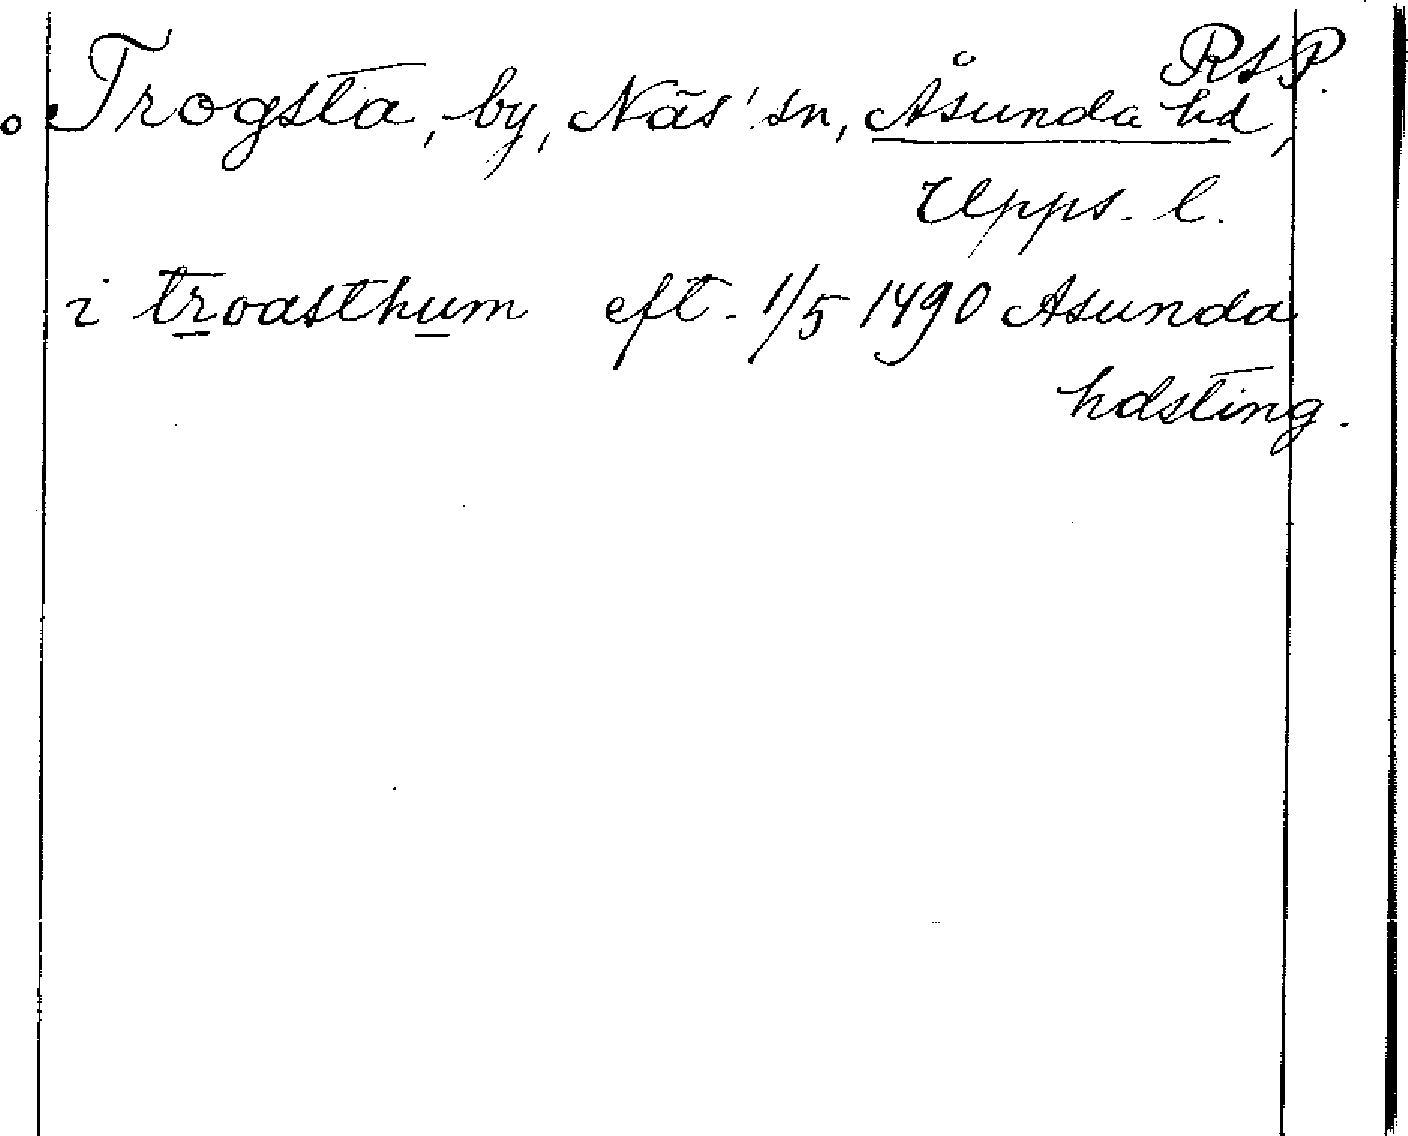 RSP.
Trogsta, by, Näs' sn, Åsunda hd,
Upps. l.
i troasthum eft. 1/5 1490 Asunda
hdsting.